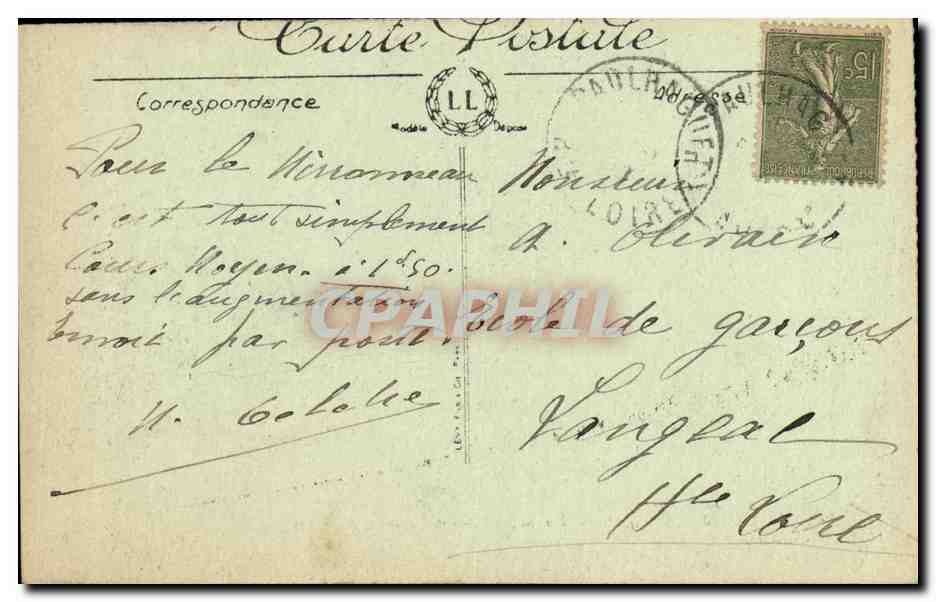 Carte Postale
Correspondance
Adresse
LL
Modèle Déposé
15c
REPUBLIQUE FRANÇAISE
PAULHAGUET
LOIRE
Pour le
c'est tout simplement
Cours Moyen. à 1f50.
sans l'augmentation
Envoi par poste.
Monsieur
A.
Ecole de garçons
Langeac
Hte Loire
CPAPHIL